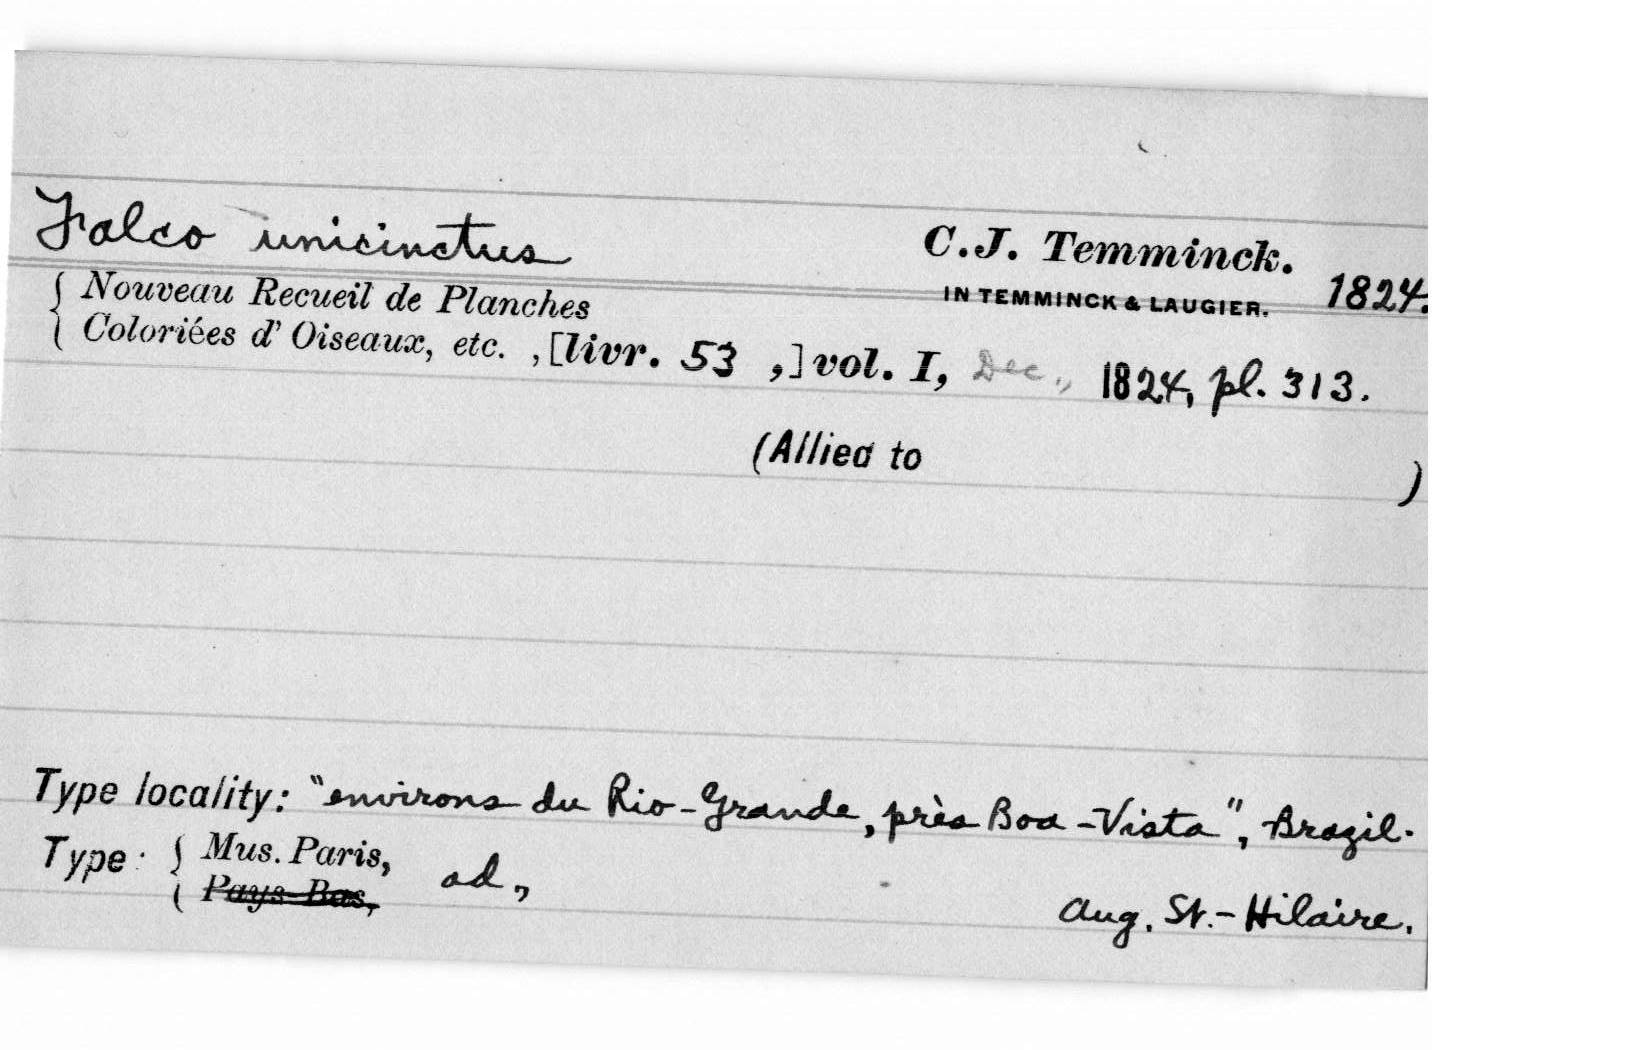 Falco unicinctus C.J. Temminck.
IN TEMMINCK & LAUGIER. 1824.
{ Nouveau Recueil de Planches
Coloriées d' Oiseaux, etc. , [livr. 53 ,] vol. I, Dec., 1824, pl. 313.
(Allied to )
Type locality: "environs du Rio-Grande, près Boa-Vista", Brazil.
Type: { Mus. Paris, ad.,
Pays-Bas,
Aug. St.-Hilaire.